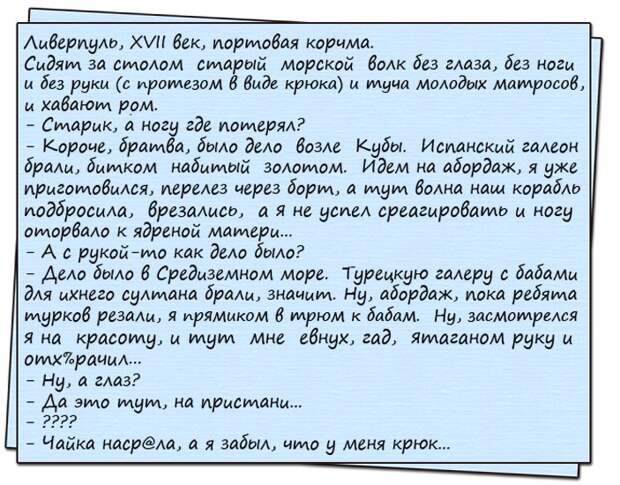 Ливерпуль, XVII век, портовая корчма.
Сидят за столом старый морской волк без глаза, без ноги
и без руки (с протезом в виде крюка) и туча молодых матросов,
и хавают ром.
- Старик, а ногу где потерял?
- Короче, братва, было дело возле Кубы. Испанский галеон
брали, битком набитый золотом. Идем на абордаж, я уже
приготовился, перелез через борт, а тут волна наш корабль
подбросила, врезались, а я не успел среагировать и ногу
оторвало к ядреной матери...
- А с рукой-то как дело было?
- Дело было в Средиземном море. Турецкую галеру с бабами
для ихнего султана брали, значит. Ну, абордаж, пока ребята
турков резали, я прямиком в трюм к бабам. Ну, засмотрелся
я на красоту, и тут мне евнух, гад, ятаганом руку и
отх%рачил...
- Ну, а глаз?
- Да это тут, на пристани...
- ????
- Чайка наср@ла, а я забыл, что у меня крюк...